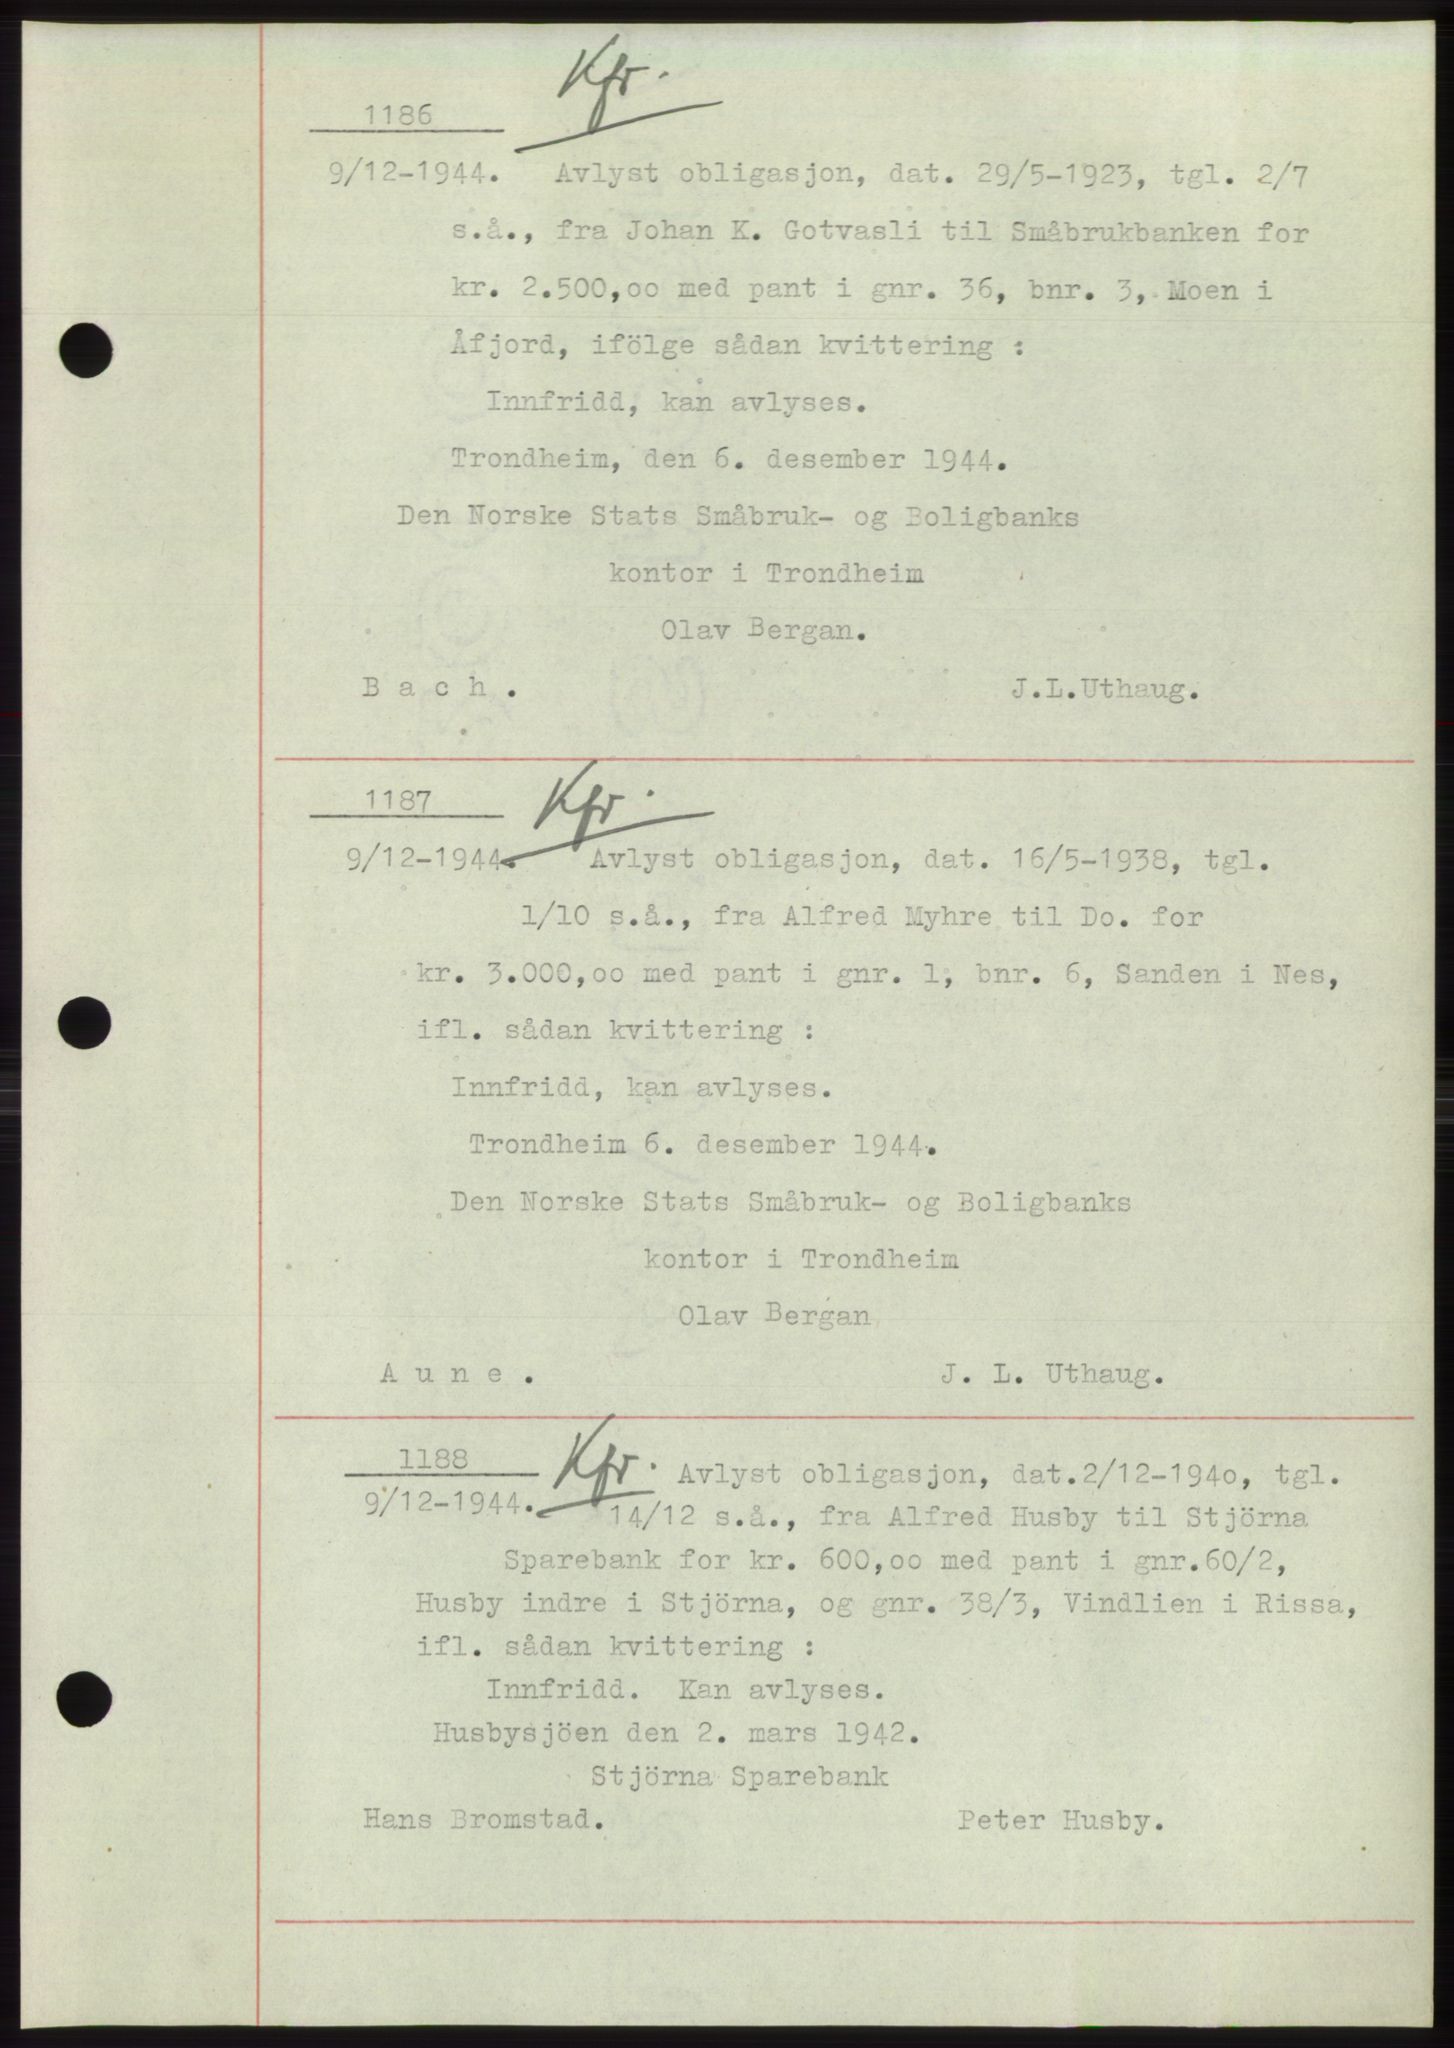 Kfr.
1186
9/12-1944. Avlyst obligasjon, dat. 29/5-1923, tgl. 2/7
s.å., fra Johan K. Gotvasli til Småbrukbanken for
kr. 2.500,oo med pant i gnr. 36, bnr. 3, Moen i
Åfjord, ifölge sådan kvittering :
Innfridd, kan avlyses.
Trondheim, den 6. desember 1944.
Den Norske Stats Småbruk- og Boligbanks
kontor i Trondheim
Olav Bergan.
B a c h . J.L.Uthaug.
1187 Kfr.
9/12-1944. Avlyst obligasjon, dat. 16/5-1938, tgl.
1/10 s.å., fra Alfred Myhre til Do. for
kr. 3.000,oo med pant i gnr. 1, bnr. 6, Sanden i Nes,
ifl. sådan kvittering :
Innfridd, kan avlyses.
Trondheim 6. desember 1944.
Den Norske Stats Småbruk- og Boligbanks
kontor i Trondheim
Olav Bergan
A u n e . J. L. Uthaug.
1188 Kfr. Avlyst obligasjon, dat.2/12-194o, tgl.
9/12-1944. 14/12 s.å., fra Alfred Husby til Stjörna
Sparebank for kr. 600,oo med pant i gnr.60/2,
Husby indre i Stjörna, og gnr. 38/3, Vindlien i Rissa,
ifl. sådan kvittering :
Innfridd. Kan avlyses.
Husbysjöen den 2. mars 1942.
Stjörna Sparebank
Hans Bromstad. Peter Husby.